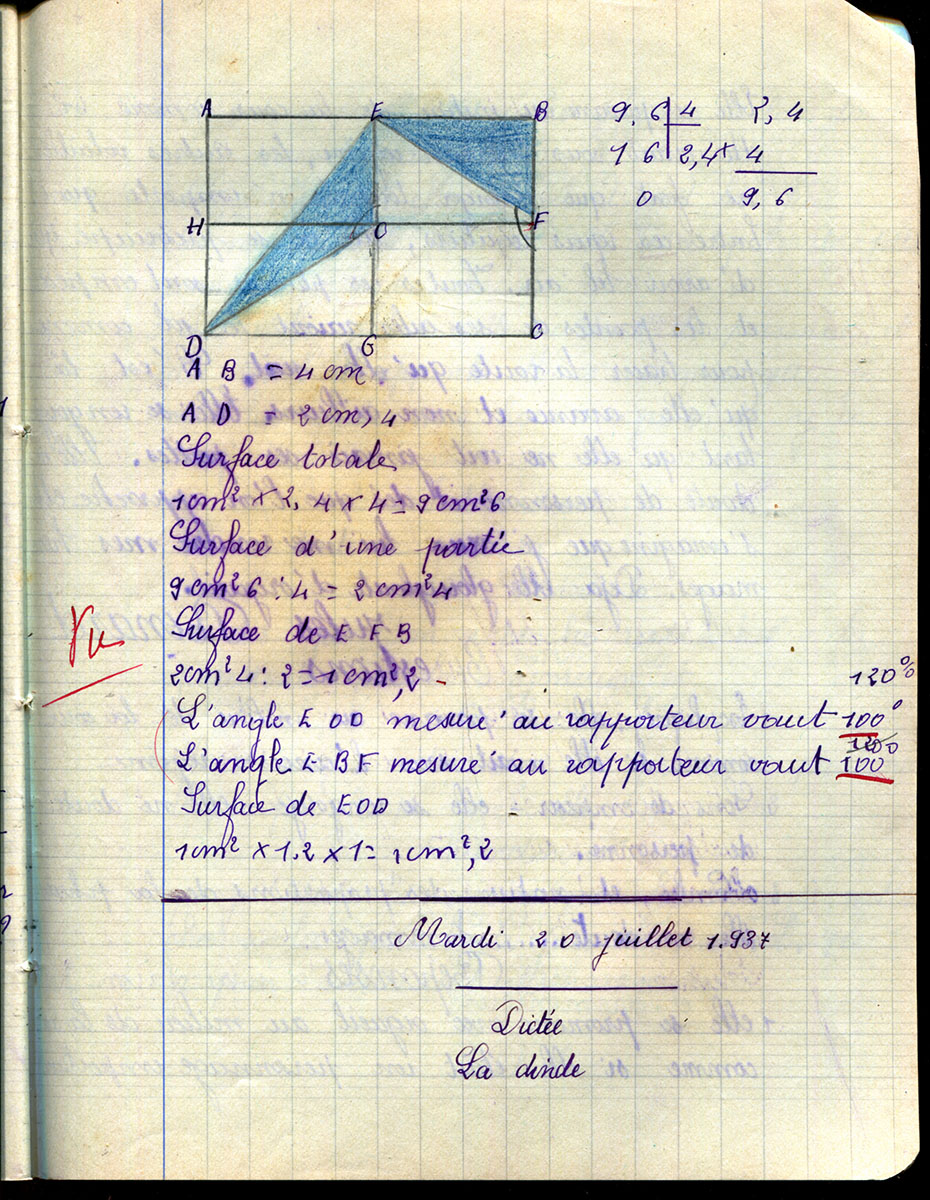 A E B
9,6 4 2,4
1 6 2,4 × 4
0 9,6
H O F
D G C
A B = 4 cm
A D = 2 cm, 4
Surface totale
1 cm² × 2,4 × 4 = 9 cm² 6
Surface d'une partie
9 cm² 6 : 4 = 2 cm² 4
Surface de E F B
2 cm² 4 : 2 = 1 cm², 2
Vu
120°
L'angle E OD mesuré au rapporteur vaut 100°
120°
L'angle E B F mesuré au rapporteur vaut 100
Surface de EOD
1 cm² × 1.2 × 1 = 1 cm², 2
Mardi 20 juillet 1.937
Dictée
La dinde